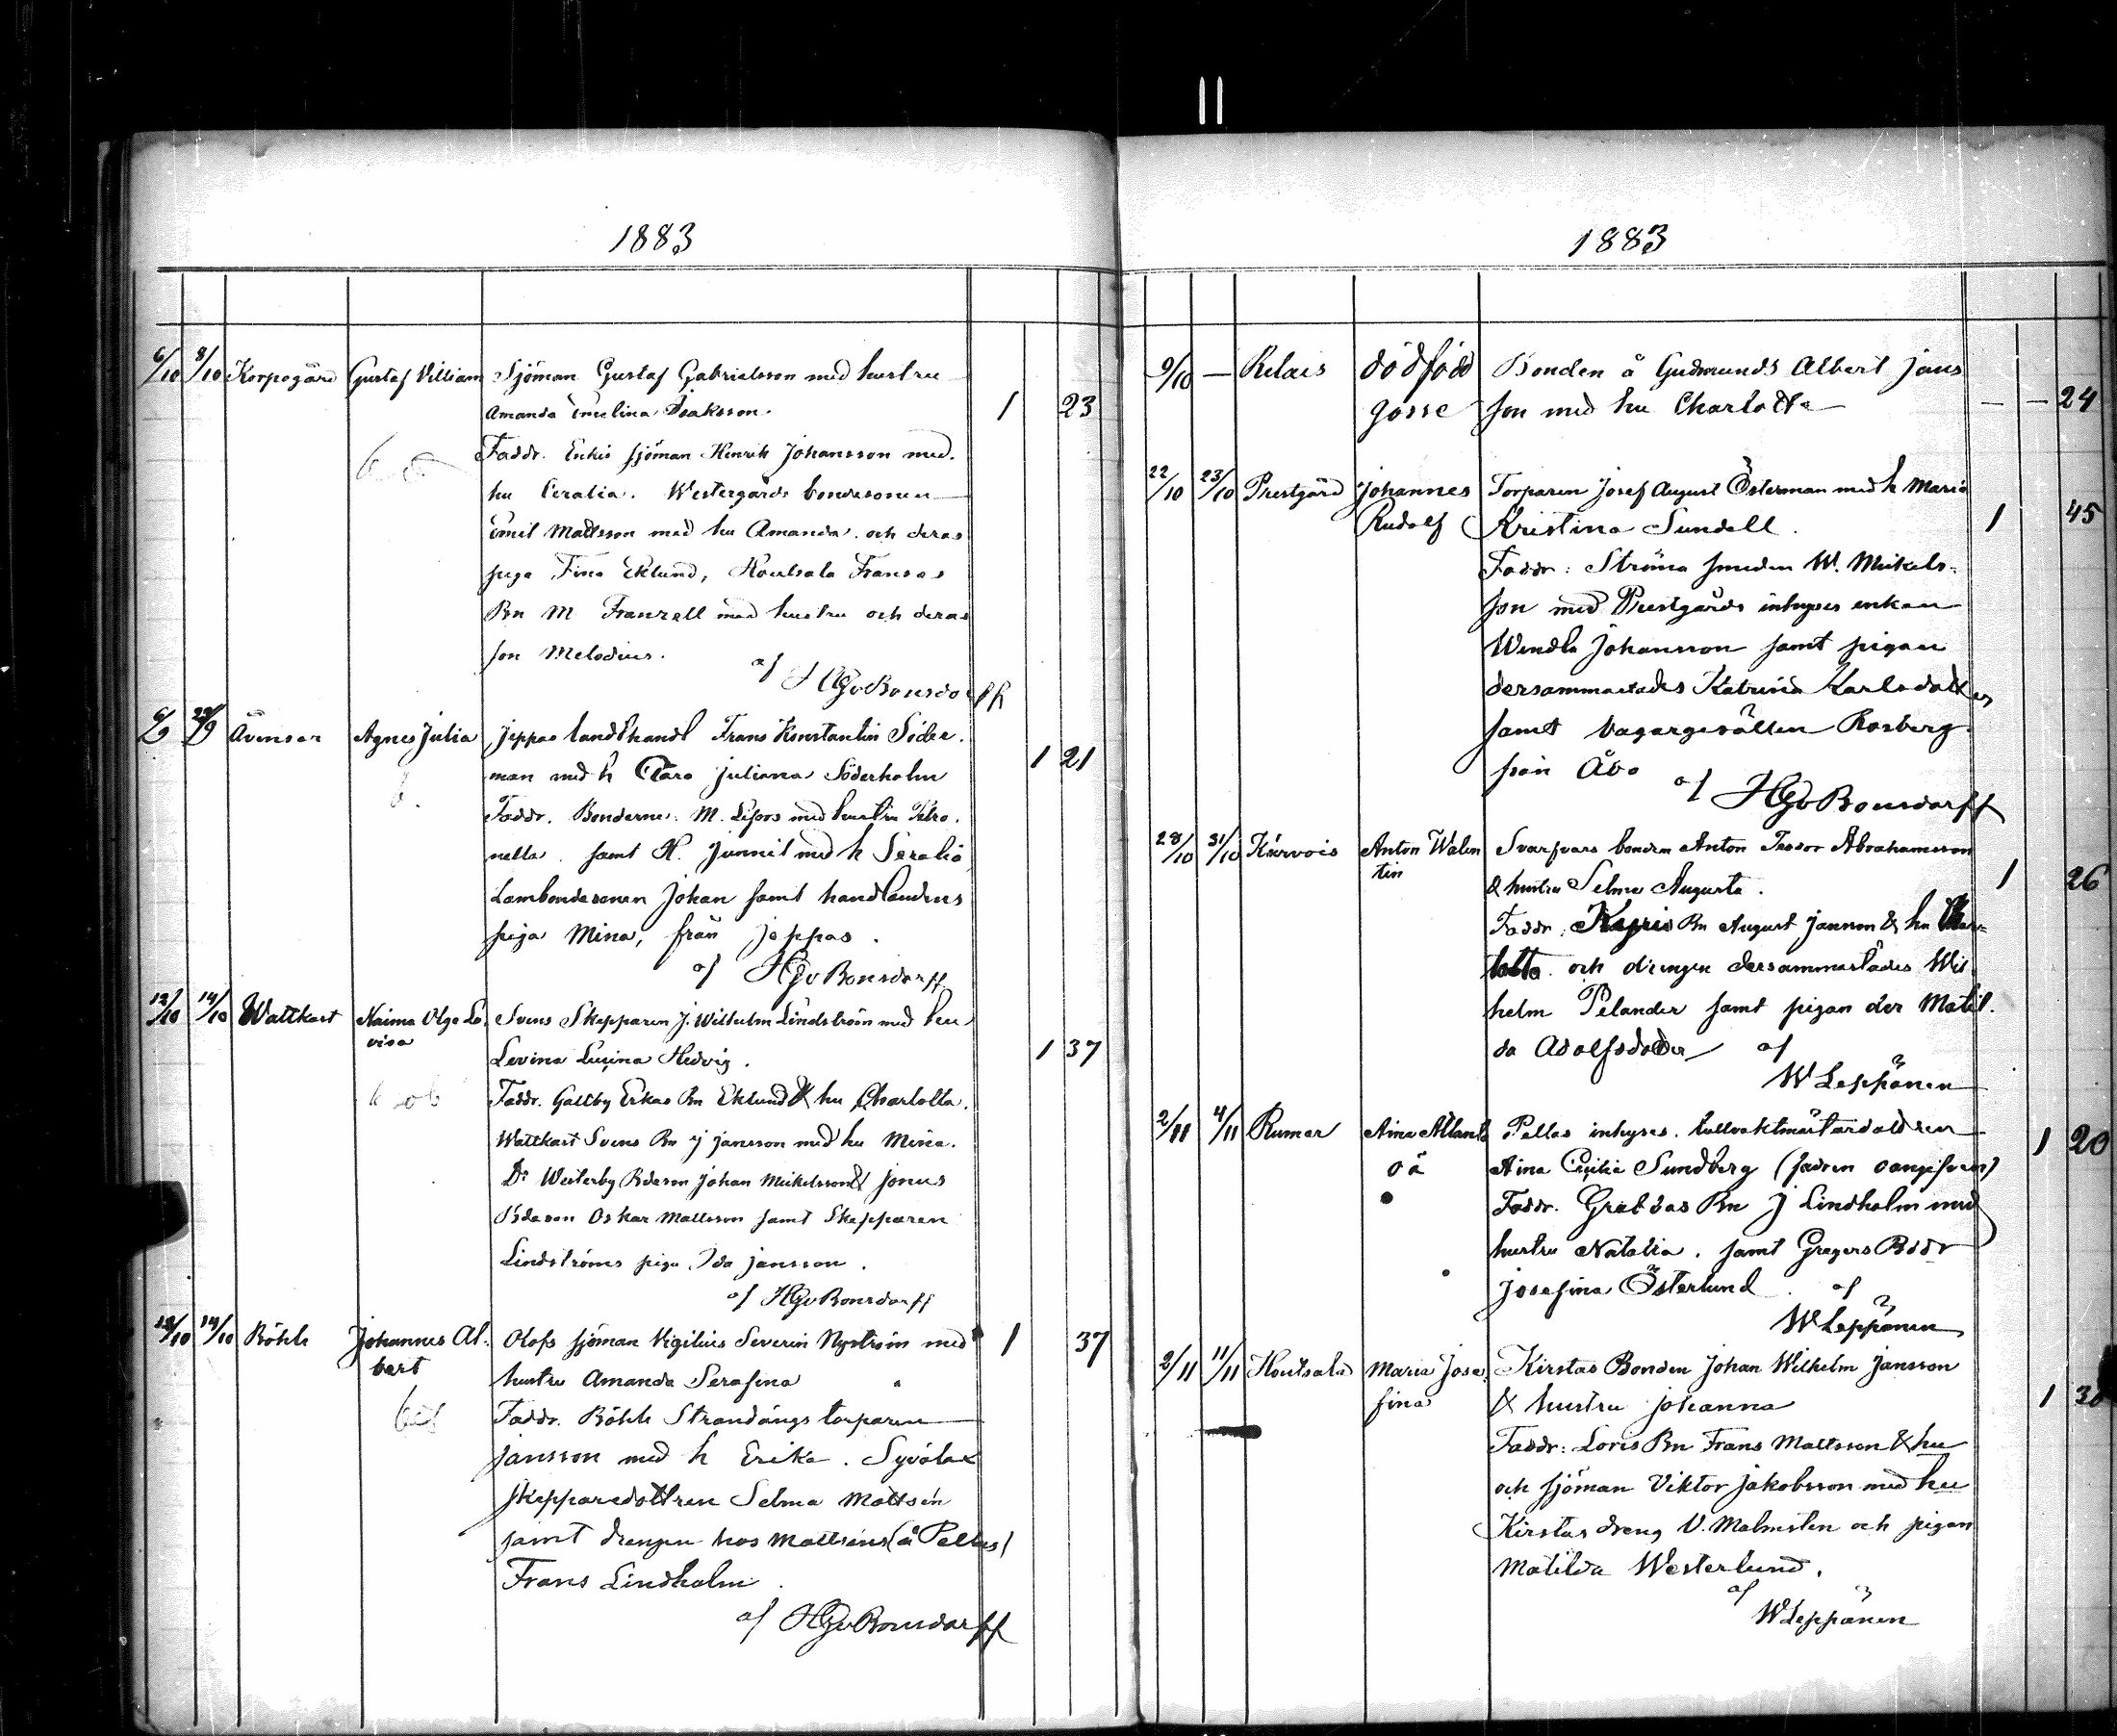 1883
6/10 8/10 Korpogård Gustaf Villiam Sjöman Gustaf Gabrielsson med hustru
Amanda Emelina Isaksson. 1 23
Faddr. Enkis sjöman Henrik Johansson med.
hu Ceralia. Westergårds bondesonen
Emil Mattsson med hu Amanda. och deras
piga Fina Eklund, Houtsala Fransas
Bn M Franzell med hustru och deras
son Melodius.
af HGvBonsdorff
6/9 Åvensor Agnes Julia Jeppas landthandl Frans Konstantin Söder.
man med h Clara Juliana Söderholm 1 21
Faddr. Bonderne: M. med hustru Petro.
nella. samt H. Junnil med h Seralia
Lambondesonen Johan samt handlandens
piga Mina, från Jeppas.
af HGvBonsdorff
12/10 14/10 Wattkast Naima Olga Lo. Svens Skepparen J. Wilhelm Lindström med hu
visa Levina Lusina Hedvig. 1 37
Faddr. Galtby Erkas Bn Eklund & hu Charlotta.
Wattkast Svens Bn J Jansson med hu Mina.
Do Westerby Bdeson Johan Mickelsson & Jonus
Bdeson Oskar Mattsson samt Skepparen
Lindströms piga Ida Jansson.
af HGvBonsdorff
12/10 14/10 Böhle Johannes Al. Olofs sjöman Vigilius Severin Nyström med 1 37
bert hustru Amanda Serafina
Faddr. Böhle Strandängs torparen
Jansson med h Erika. Syvälax
skepparedottren Selma Mattsén
samt drengen hos Mattséns (å Pellas)
Frans Lindholm
af HGvBonsdorff
1883
9/10 — Relais dödfödd Bonden å Gudmunds Albert Jans
gosse son med hu Charlotta — — 24
22/10 23/10 Prestgård Johannes Torparen Josef August Österman med h Maria
Rudolf Kristina Sundell. 1 45
Faddr: Ströma smeden W. Mickels-
son med Prestgårds inhyses enkan
Wendla Johansson samt pigan
dersammastädes Katrina Karlsdotter
samt bagargesällen Rosberg
från Åbo
af HGvBonsdorff
28/10 31/10 Kärvois Anton Walen Svarfvars bonden Anton Teodor Abrahamsson
tin & hustru Selma Augusta. 1 26
Faddr: Bn August Janson & hu Char-
lotta. och drengen dersammastädes Wil.
helm Pelander samt pigan der Matil.
da Adolfsdotter af
W Leppänen
2/11 4/11 Rumar Aina Pellas inhyses. tullvaktmästardottren 1 20
oä Aina Cecilia Sundberg (fadren oangifven)
Faddr. Grabbas Bn J Lindholm med
hustru Natalia. samt Gregers Bddr
Josefina Österlund. af
W Leppänen
2/11 11/11 Houtsala Maria Jose Kirstas Bonden Johan Wilhelm Jansson
fina & hustru Johanna 1
Faddr: Loris Bn Frans Mattsson & hu
och sjöman Viktor Jakobsson med hu
Kirstas dreng V. Malmsten och pigan
Matilda Westerlund.
af
W Leppänen